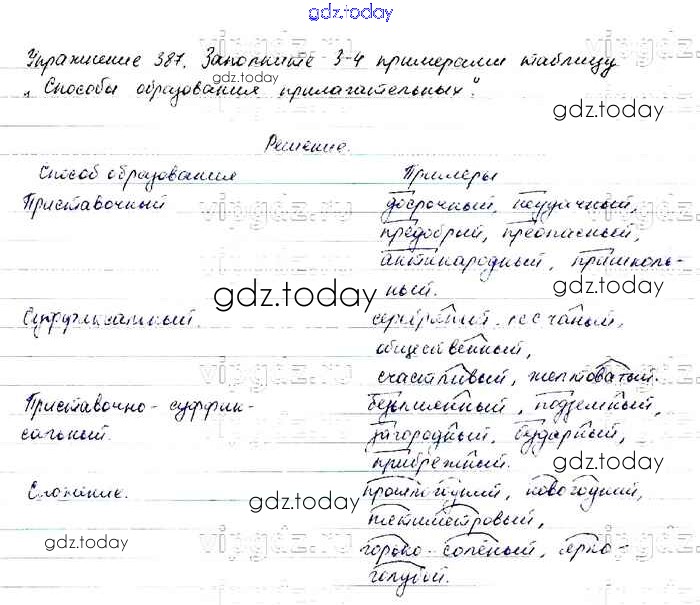 gdz.today
Упражнение 387. Заполните 3-4 примерами таблицу
gdz.today
„Способы образования прилагательных".
gdz.today
Решение.
Способ образования Примеры
Приставочный досрочный, неудачный,
предобрый, преопасный,
антинародный, пришколь-
ный.
gdz.today
gdz.today
Суффиксальный. серебряный, песчаный,
общественный,
счастливый, желтоватый.
Приставочно-суффик- безымянный, подземный,
сальный. загородный, бударный,
gdz.today
прибрежный.
Сложение. новогодний,
gdz.today
пятиметровый,
gdz.today
горько-солёный, ярко-
голубой.